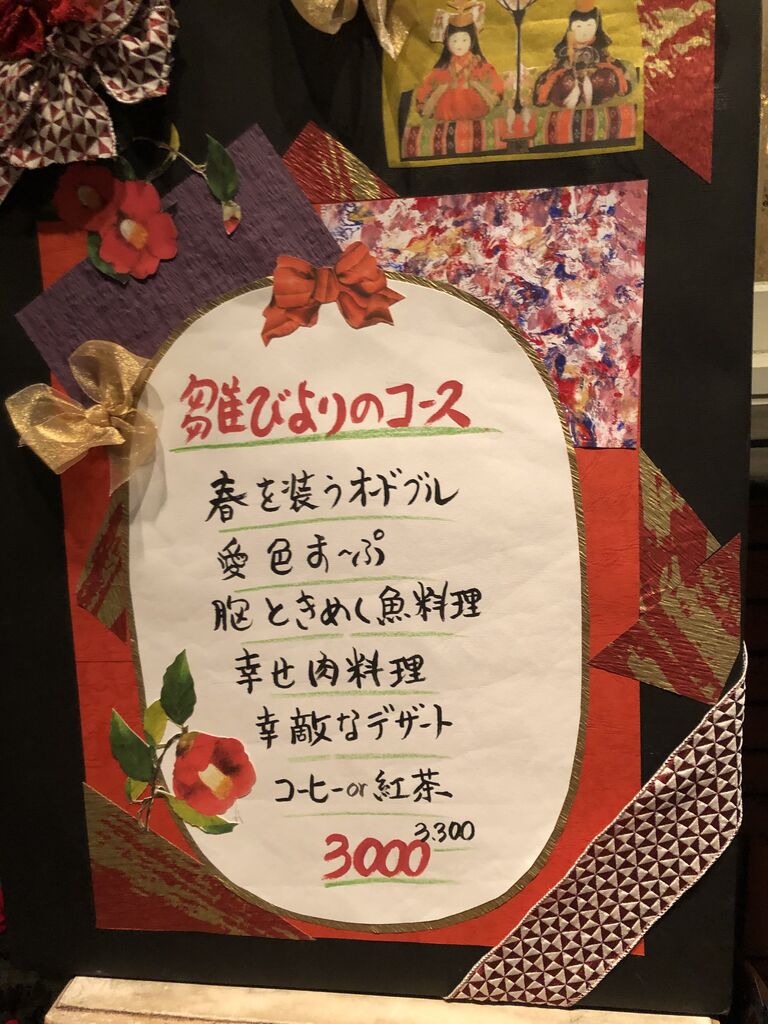 雛びよりのコース
春を装うオードブル
愛色すーぷ
胸ときめく魚料理
幸せ肉料理
幸敵なデザート
コーヒーor紅茶
3000 3.300